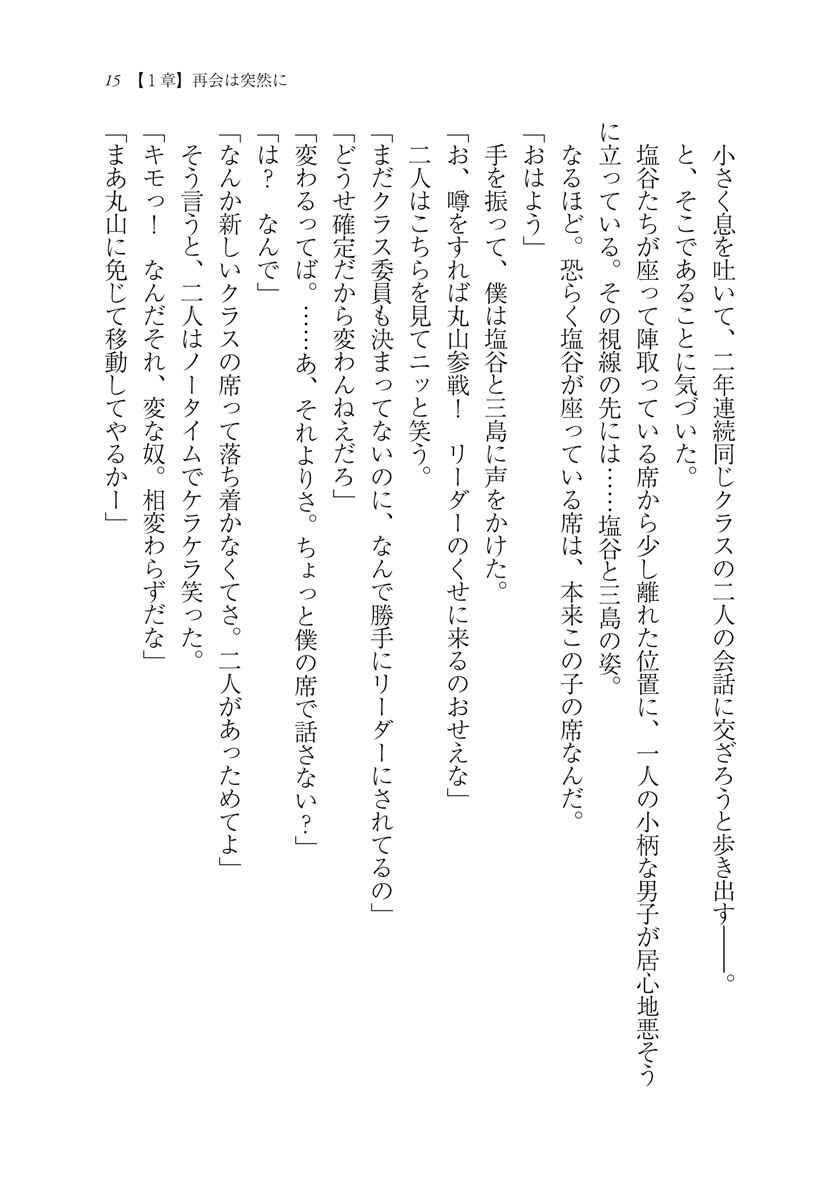 15 【1章】再会は突然に
　小さく息を吐いて、二年連続同じクラスの二人の会話に交ざろうと歩き出す――。
　と、そこであることに気づいた。
　塩谷たちが座って陣取っている席から少し離れた位置に、一人の小柄な男子が居心地悪そう
に立っている。その視線の先には……塩谷と三島の姿。
　なるほど。恐らく塩谷が座っている席は、本来この子の席なんだ。
「おはよう」
　手を振って、僕は塩谷と三島に声をかけた。
「お、噂をすれば丸山参戦！　リーダーのくせに来るのおせえな」
　二人はこちらを見てニッと笑う。
「まだクラス委員も決まってないのに、なんで勝手にリーダーにされてるの」
「どうせ確定だから変わんねえだろ」
「変わるってば。……あ、それよりさ。ちょっと僕の席で話さない？」
「は？　なんで」
「なんか新しいクラスの席って落ち着かなくてさ。二人があっためてよ」
　そう言うと、二人はノータイムでケラケラ笑った。
「キモっ！　なんだそれ、変な奴。相変わらずだな」
「まあ丸山に免じて移動してやるかー」